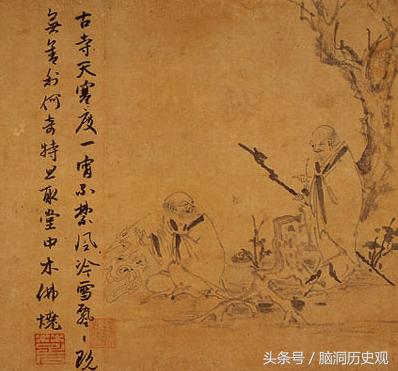 古寺天寒度一宵不禁風冷雪飄〻既
無舍利何奇特且取堂中木佛燒
头条号 / 脑洞历史观